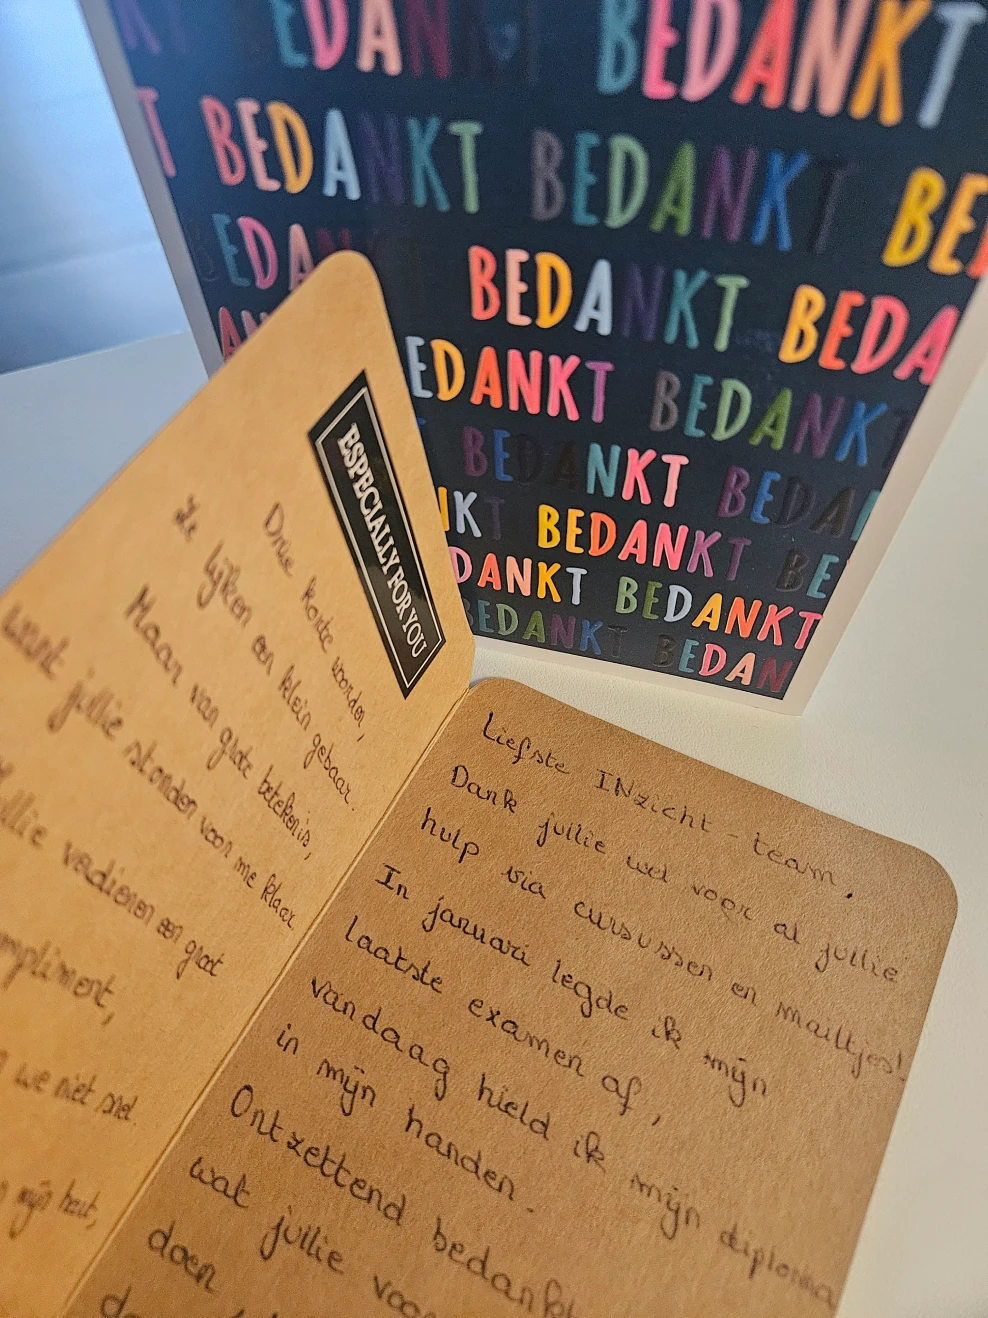 BEDANKT BEDANKT
T BEDANKT BEDANKT BE
BEDA BEDANKT BEDA
AN EDANKT BEDANKT
BEDANKT BEDA
NKT BEDANKT BE
DANKT BEDANKT
BEDANKT BEDAN
ESPECIALLY FOR YOU
Deze korte woorden,
Ze lijken een klein gebaar.
Maar van grote betekenis,
want jullie stonden voor me klaar
jullie verdienen een groot
compliment,
we niet snel.
mijn hart,
Liefste INzicht-team,
Dank jullie wel voor al jullie
hulp via cursussen en mailtjes!
In januari legde ik mijn
laatste examen af,
vandaag hield ik mijn diploma
in mijn handen.
Ontzettend bedankt
wat jullie voor
doen